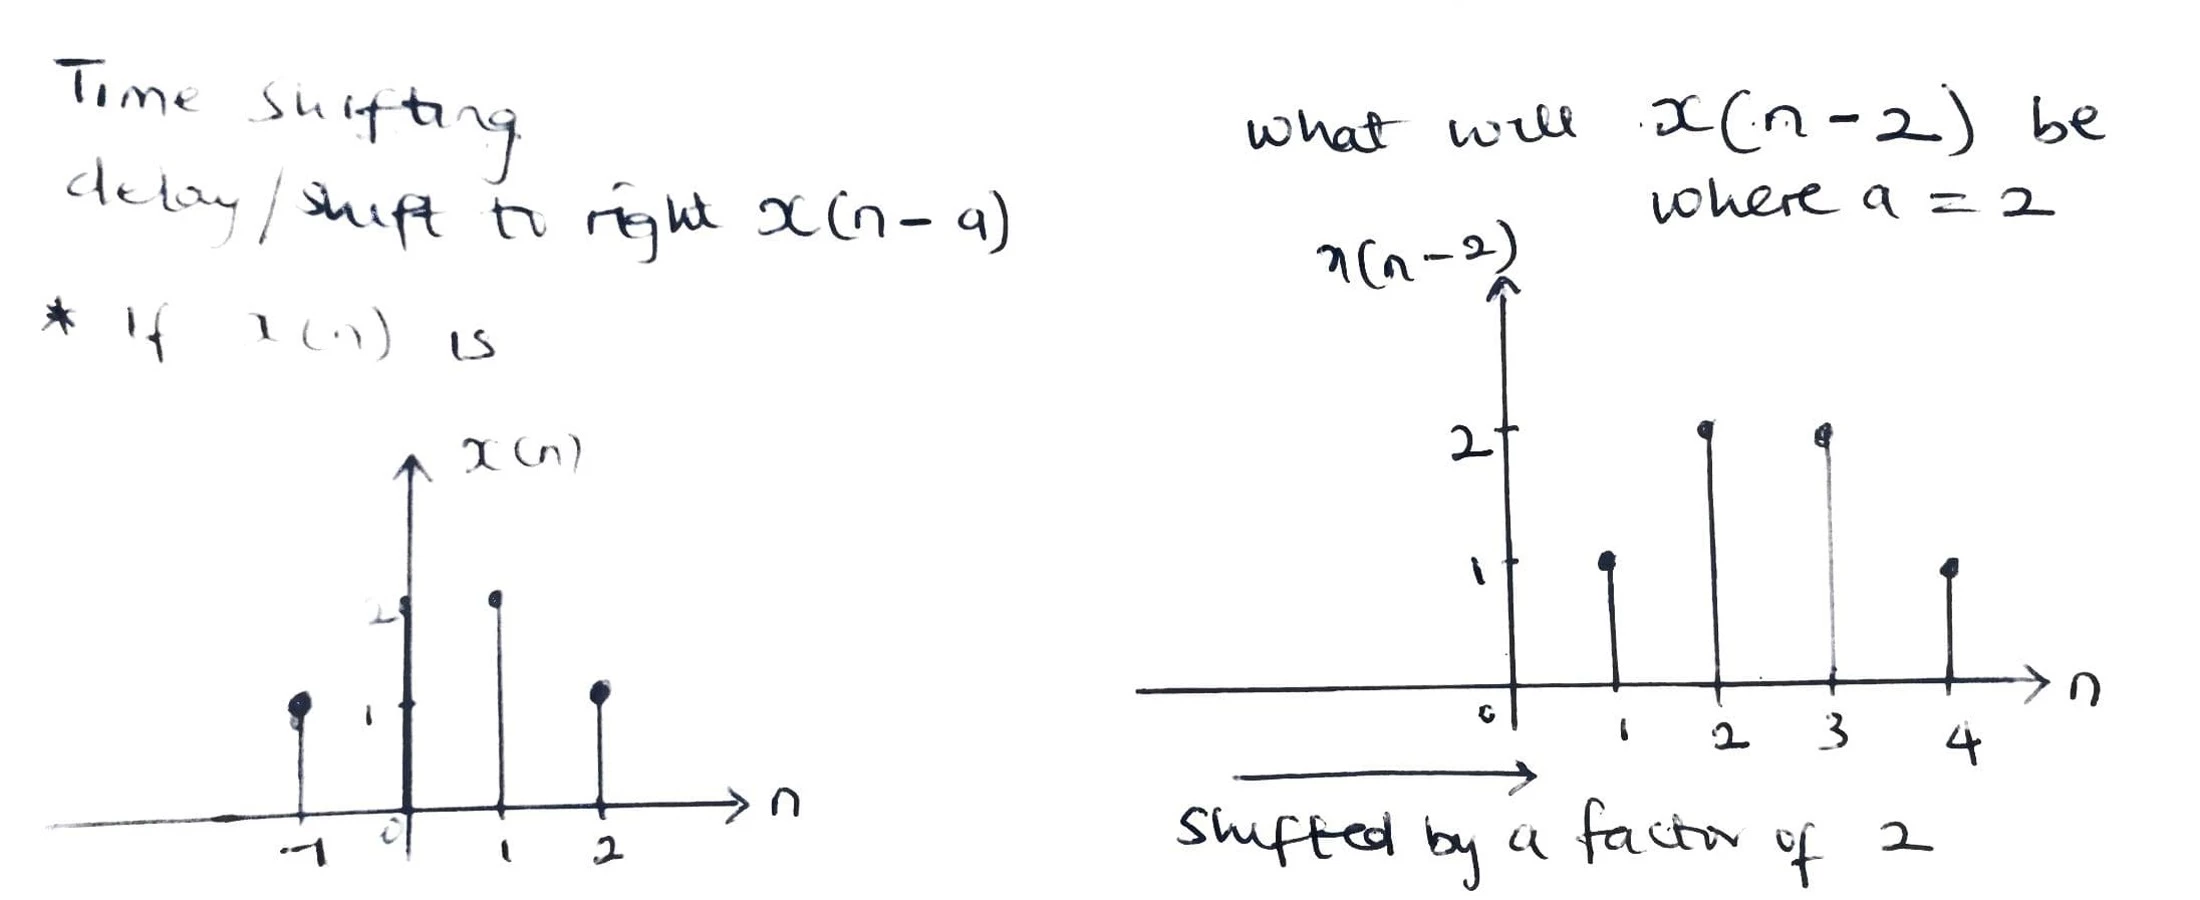 Time shifting
delay/shift to right x(n-a)
* If x(n) is
x(n)
2
1
n
-1 0 1 2
what will x(n-2) be
where a = 2
x(n-2)
2
1
n
0 1 2 3 4
shifted by a factor of 2